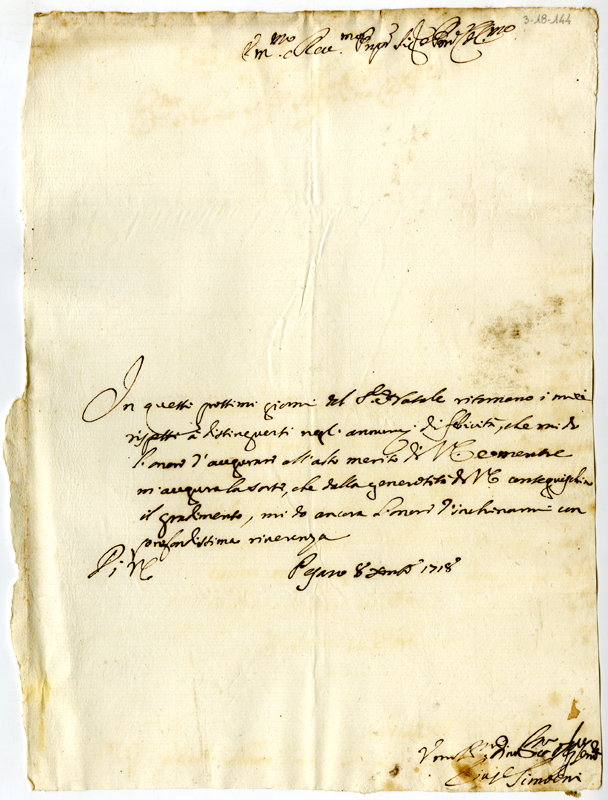 3-18-144
Em.mo e Rev.mo
In questi prossimi giorni del S. Natale ritornano i miei
rispetti à distinguersi negl'annunzj di felicità, che mi do
l'onore d'augurare all'alto merito di V.E. e mentre
m'augura la sorte, che dalla generosità di V.E. conseguischino
il gradimento, mi do ancora l'onore d'inchinarmi con
profondissima riverenza
Di V.E. Pesaro 8 Xmbre 1718
Simoni